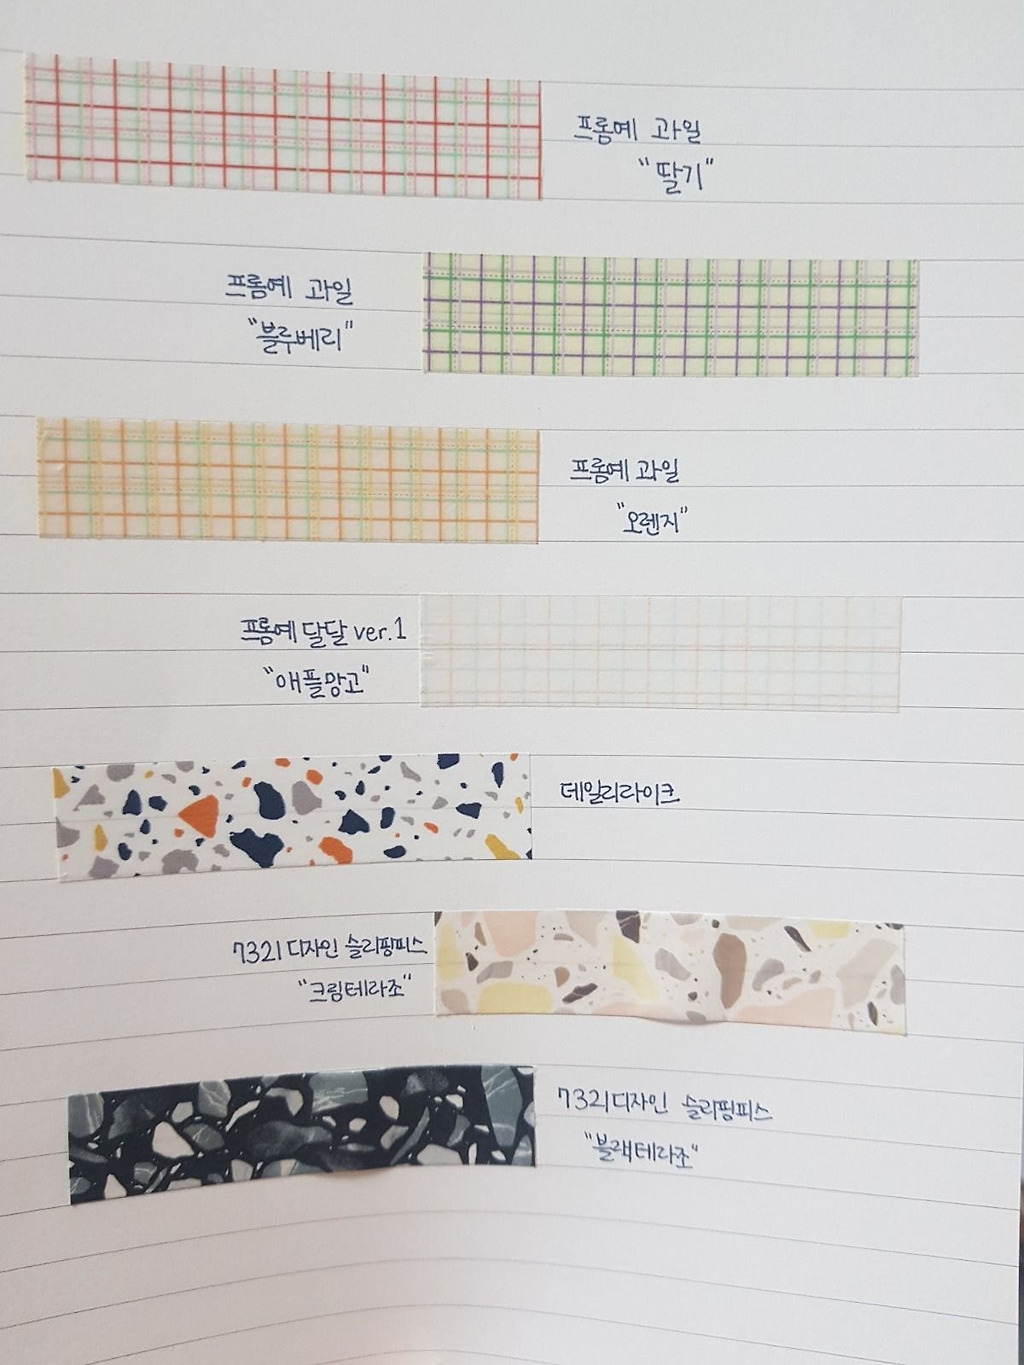 프롬예 과일
"딸기"
프롬예 과일
"블루베리"
프롬예 과일
"오렌지"
프롬예 달달 ver.1
"애플망고"
데일리라이크
7321 디자인 슬리핑피스
"크림테라조"
7321 디자인 슬리핑피스
"블랙테라조"